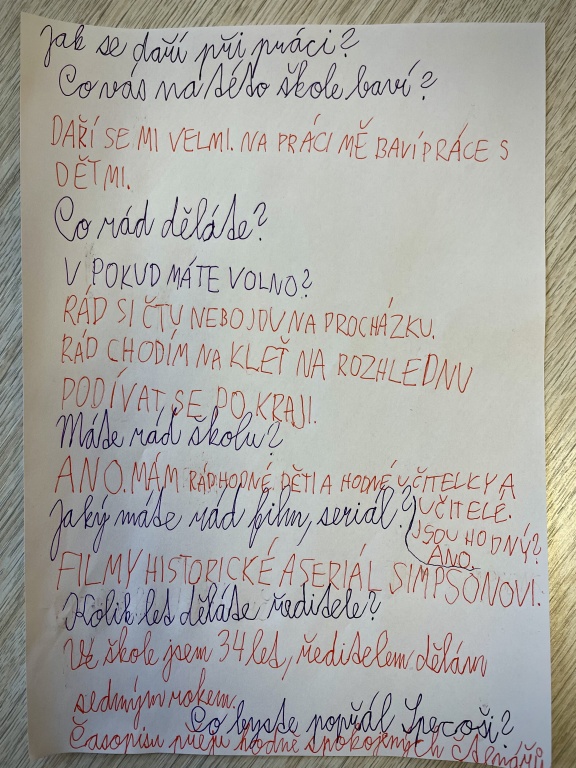 Jak se daří při práci?
Co vás na této škole baví?
DAŘÍ SE MI VELMI. NA PRÁCI MĚ BAVÍ PRÁCE S
DĚTMI.
Co rád děláte?
V POKUD MÁTE VOLNO?
RÁD SI ČTU NEBO JDU NA PROCHÁZKU.
RÁD CHODÍM NA KLEŤ NA ROZHLEDNU
PODÍVAT SE PO KRAJI.
Máte rád školu?
ANO. MÁM RÁD HODNÉ DĚTI A HODNÉ UČITELKY A
UČITELÉ.
JSOU HODNÝ?
ANO.
Jaký máte rád film, seriál?
FILMY HISTORICKÉ A SERIÁL SIMPSONOVI.
Kolik let děláte ředitele?
Ve škole jsem 34 let, ředitelem dělám
sedmým rokem.
Co byste popřál
Časopisu přeji hodně spokojených čtenářů